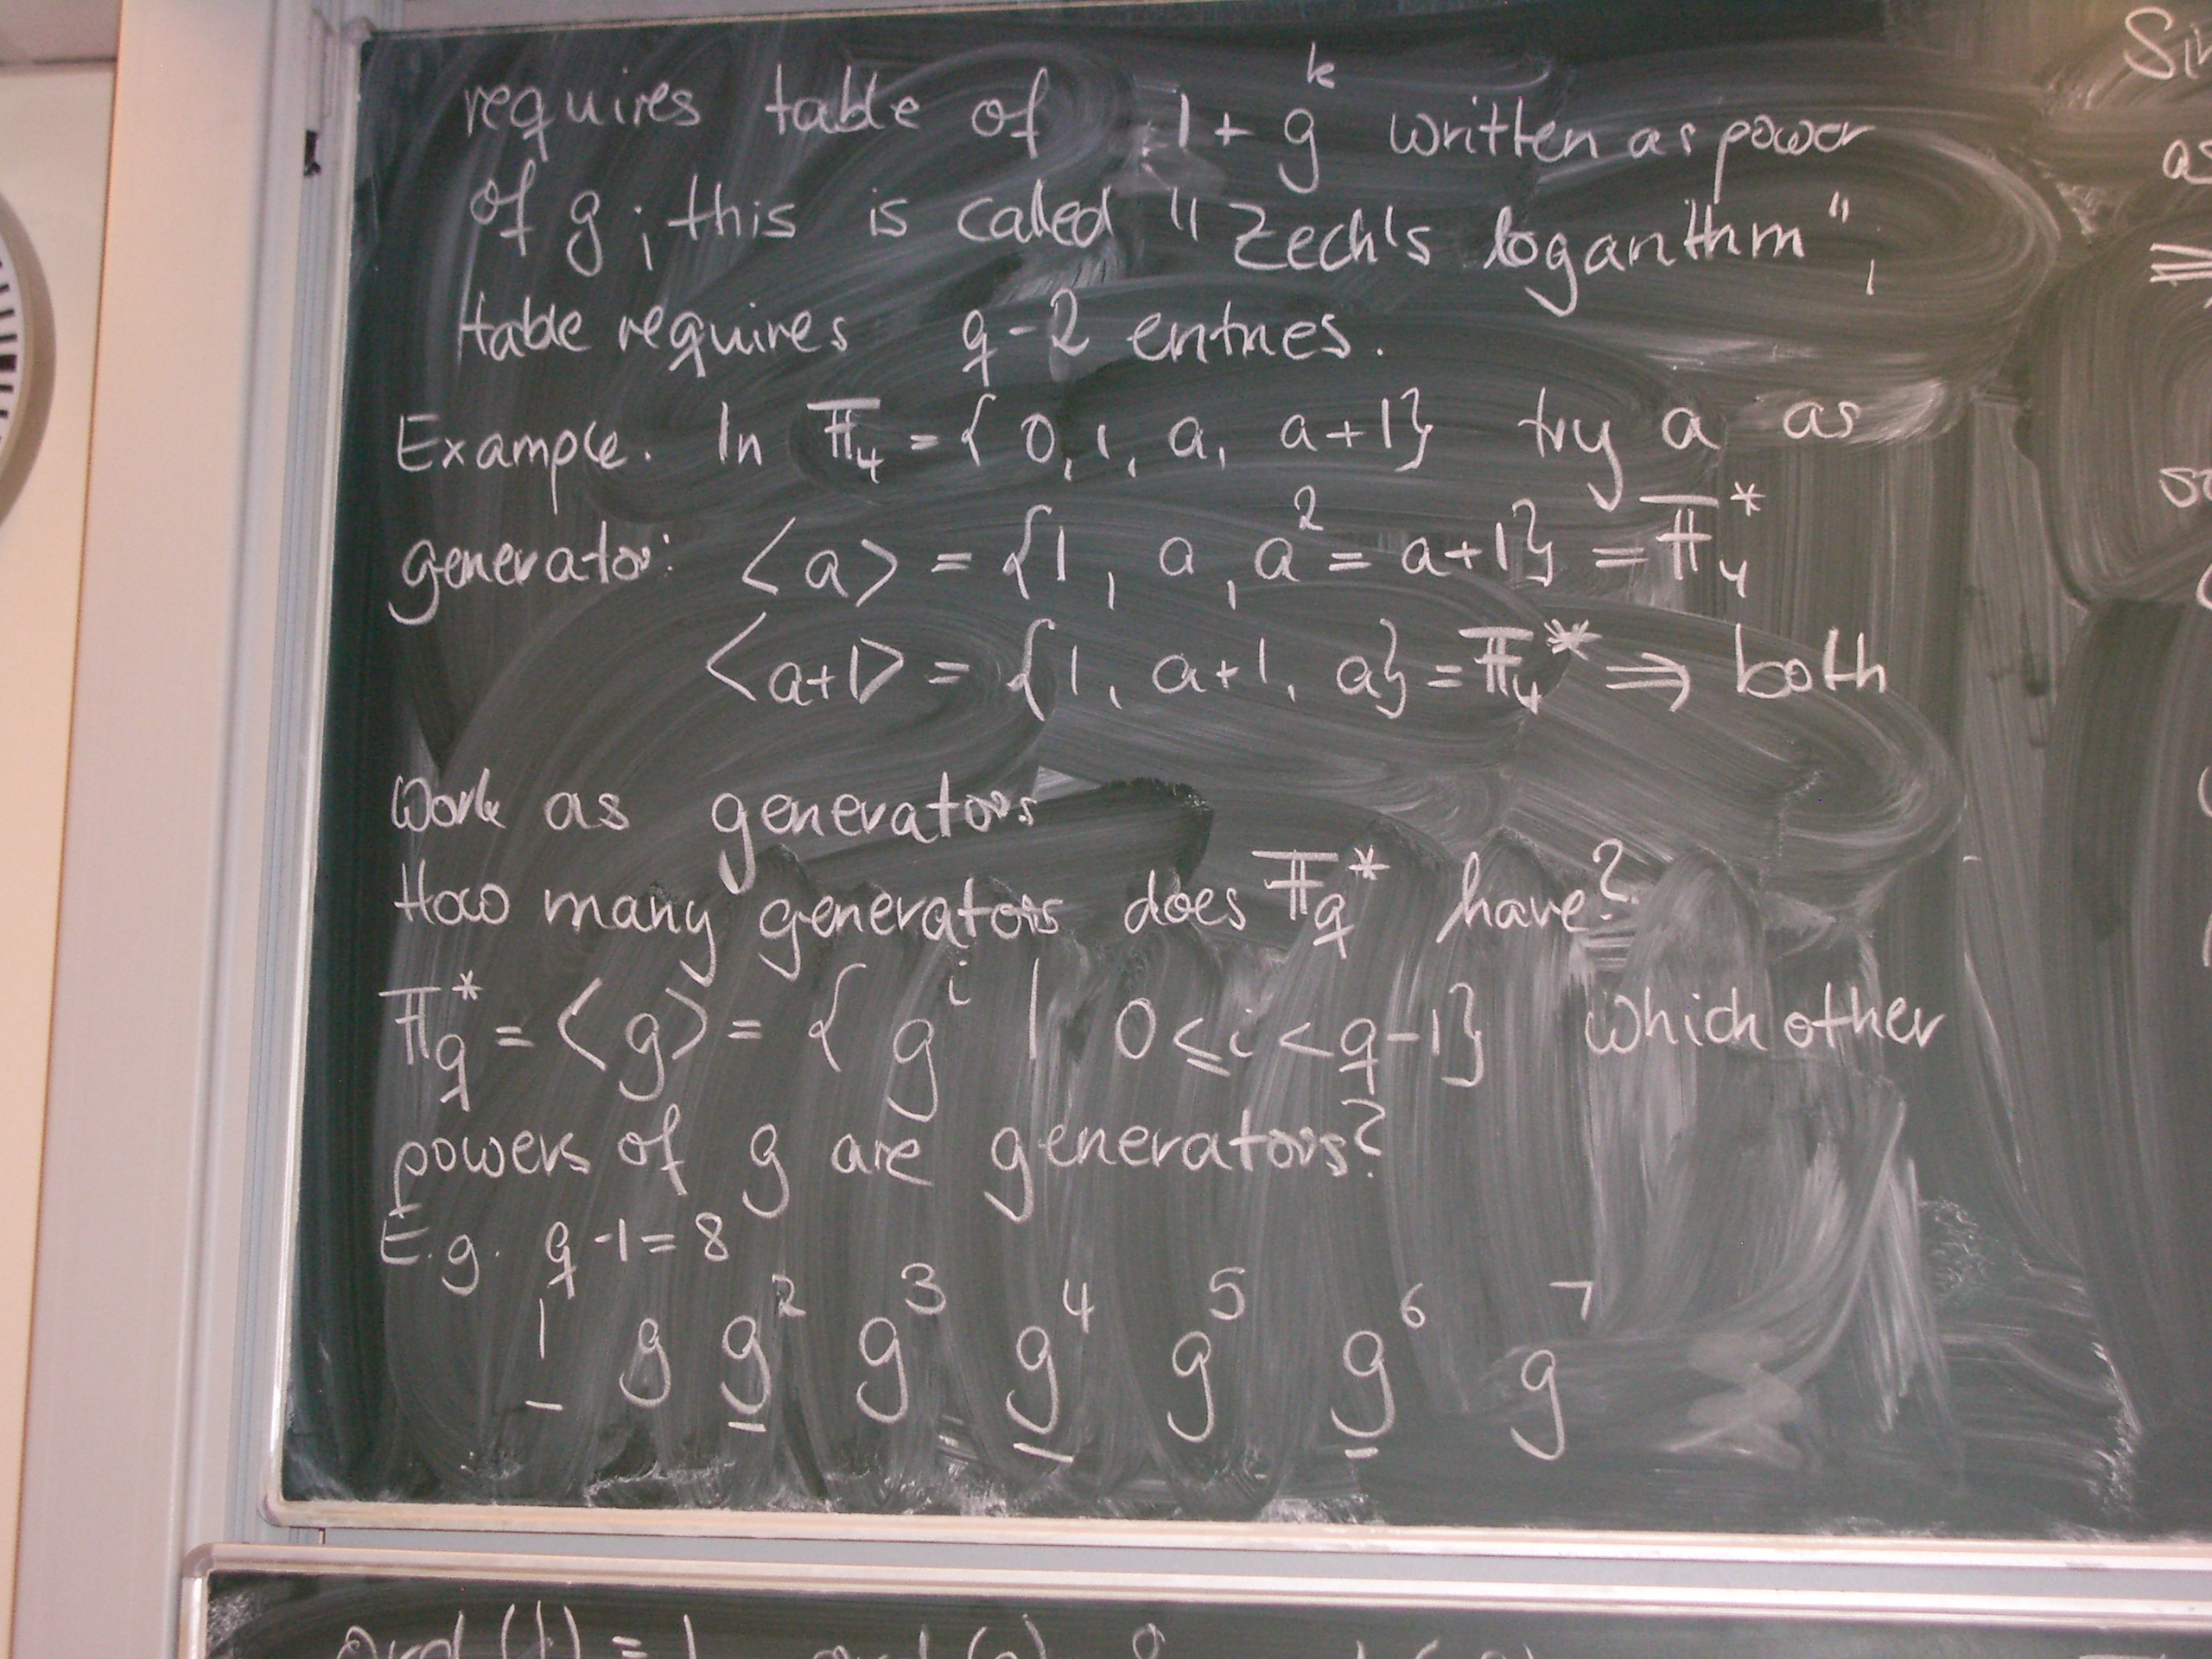 requires table of 1 + g^k written as power
of g ; this is called "Zech's logarithm",
table requires q-2 entries.
Example. In 𝔽_4 = { 0, 1, a, a+1} try a as
generator: <a> = {1, a, a^2 = a+1} = 𝔽_4^*
<a+1> = {1, a+1, a} = 𝔽_4^* ⇒ both
work as generators
How many generators does 𝔽_q^* have?
𝔽_q^* = <g> = { g^i | 0 ≤ i < q-1} Which other
powers of g are generators?
E.g. q-1=8
1 g g^2 g^3 g^4 g^5 g^6 g^7
ord(1) = 1